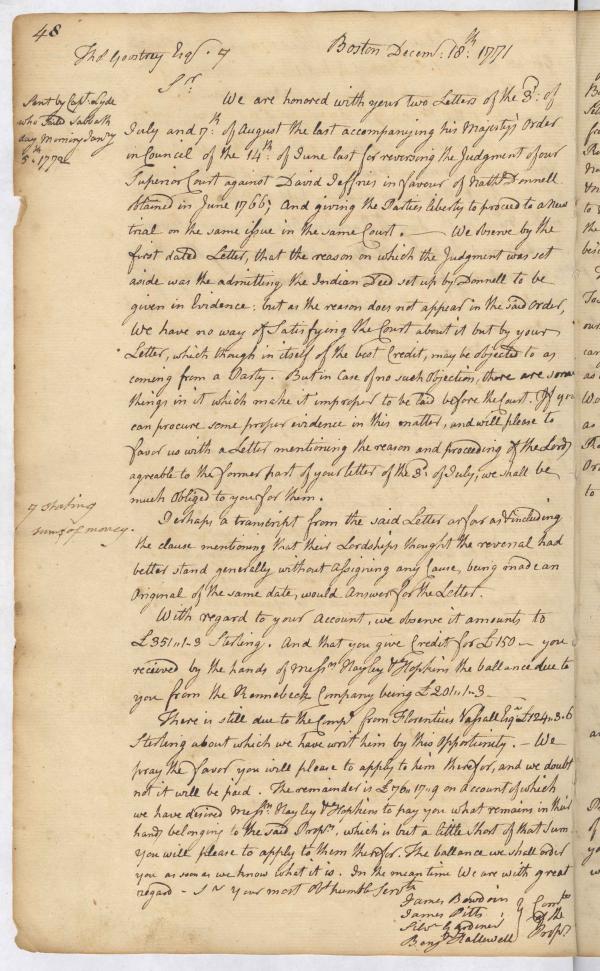 48
Thos Goostrey Esqr. 7 Boston Decemr. 18th. 1771
Sent by Capt. Lyde
who Sabbath
day Morning Jany
5th. 1772
Sr.
We are honored with your two Letters of the 3d. of
July and 7th. of August the last accompanying his Majesty's Order
in Council of the 14th. of June last for reversing the Judgment of our
Superior Court against David Jeffries in favour of Nathl Donnell
obtained in June 1766; And giving the Parties liberty to proceed to a New
trial on the same issue in the same Court. — We observe by the
first dated Letter, that the reason on which the Judgment was set
aside was the admitting the Indian Deed set up by Donnell to be
given in Evidence; but as the reason does not appear in the said Order,
We have no way of Satisfying the Court about it but by your
Letter, which though in itself of the best Credit, may be objected to as
coming from a Party. But in Case of no such Objection, there are some
things in it which make it improper to be laid before the Court. If you
can procure some proper evidence in this matter, and will please to
favor us with a Letter mentioning the reason and proceeding of the Lords
agreable to the former part of your letter of the 3d. of July, we shall be
much Obliged to you for them.
7 Stating
sum of money.
Perhaps a transcript from the said Letter as far as & including
the clause mentioning that their Lordships thought the reversal had
better stand generally without assigning any Cause, being made an
Original of the same date, would Answer for the Letter.
With regard to your Account, we observe it amounts to
£351"1-3 Sterling. And that you give Credit for £150 — you
received by the hands of Messrs Hayley & Hopkins the ballance due to
you from the Kennebeck Company being £201"1-3 —
There is still due to the Compy from Florentius Vassall Esqr £124"3-6
Sterling about which we have writ him by this Opportunity. — We
pray the favor you will please to apply to him therefor, and we doubt
not it will be paid. The remainder is £76"17"9 on account of which
we have desired Messrs. Hayley & Hopkins to pay you what remains in their
hands belonging to the said Proprs, which is but a little Short of that Sum
you will please to apply to them therefor. The ballance we shall order
you as soon as we know what it is. In the mean time We are with great
regard - Sr Your most Obt humble Servts
James Bowdoin
James Pitts
Silvr Gardiner
Benjn Hallowell
Comtee
of the
Proprs